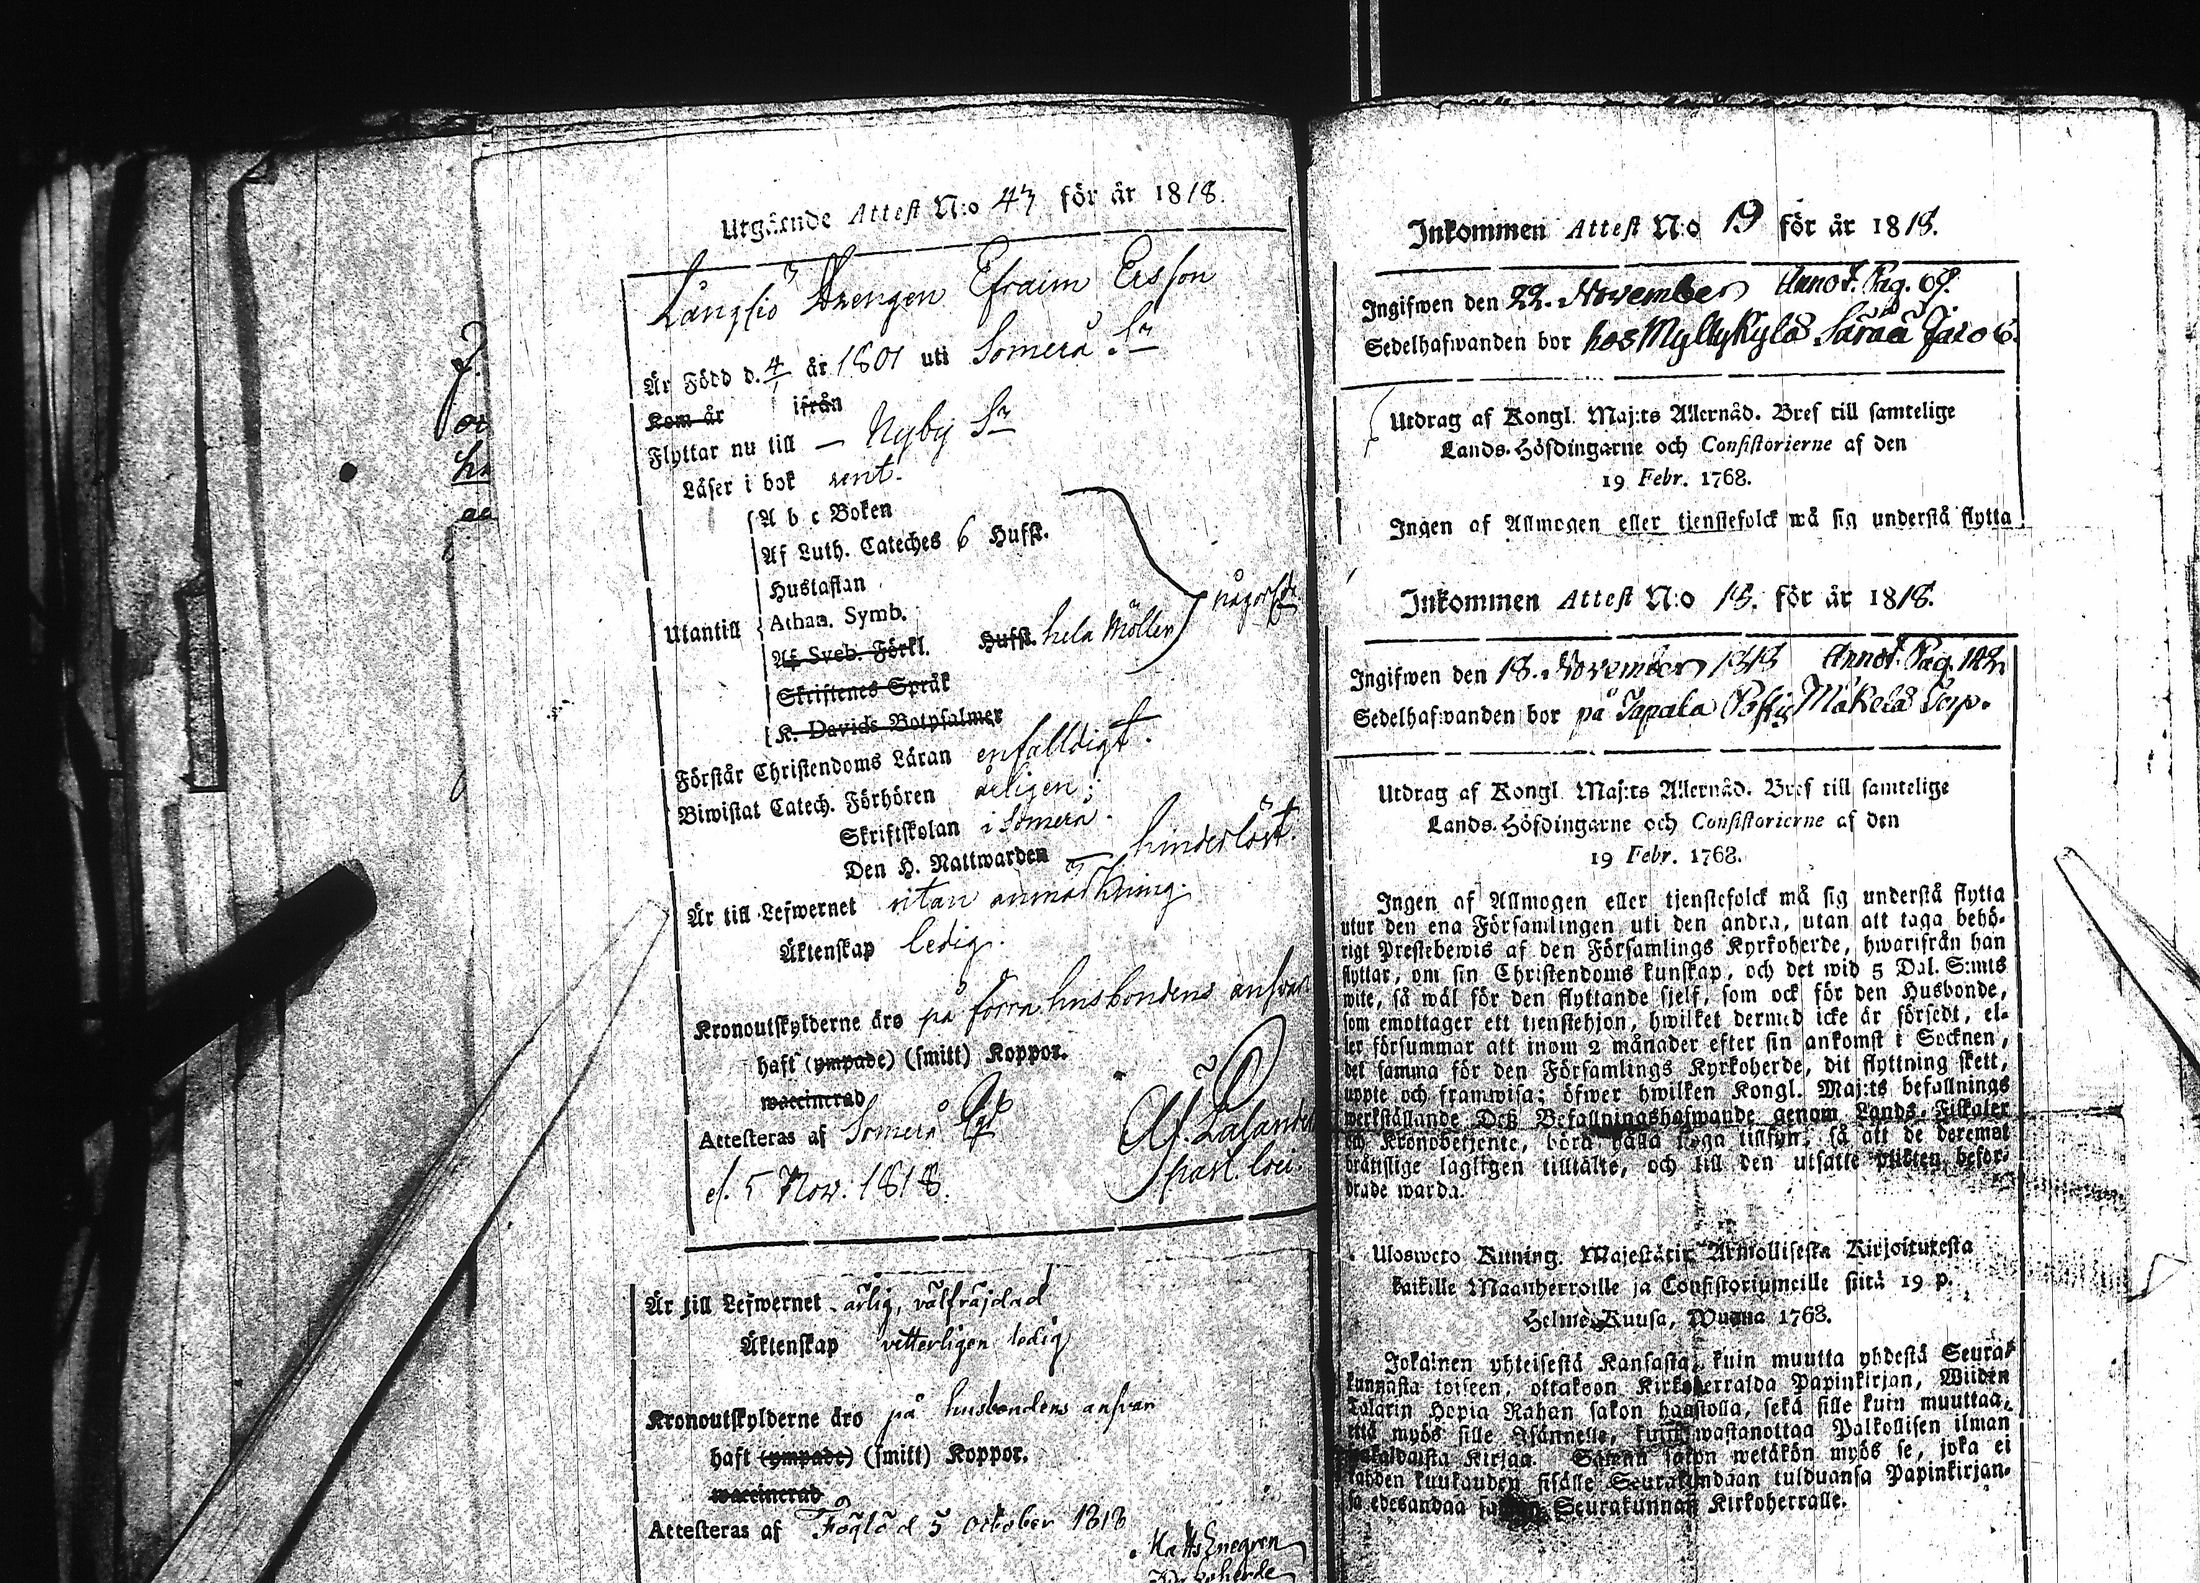 Utgående Attest N:o 47 för år 1818.
Långsjö Drengen Efraim Ersson
Är Född d. 4/1 år 1801 uti Somero Sn
Kom år ifrån
Flyttar nu till — Nyby Sn
Läser i bok rent.
Utantill
A b c Boken
Af Luth. Cateches 6 Hufst.
Hustaflan
Athan. Symb.
Af Sveb. Förkl. Hufst. hela Möller
någorl.
Skriftenes Språk
K. Davids Botpsalmer
Förstår Christendoms Läran enfalldigt.
Biwistat Catech. Förhören årligen;
Skriftskolan i Somero.
Den H. Nattwarden — hinderlöst.
Är till Lefwernet utan anmärkning.
Äktenskap ledig.
Kronoutskylderne äro på förra husbondens answar
haft (ympade) (smitt) Koppor.
waccinerad
Attesteras af Somero
d. 5 Nov. 1818.
past. loci.
Är till Lefwernet ärlig, välfräjdad
Äktenskap vetterligen ledig
Kronoutskylderne äro på husbondens answar
haft (ympade) (smitt) Koppor.
waccinerad
Attesteras af Föglö d 5 october 1818
Matts Enegren
Kyrkoherde
Inkommen Attest N:o 19 för år 1818.
Ingifwen den 22. November Annot. Pag. 69.
Sedelhafwanden bor hos Myllykylä Jacob.
Utdrag af Kongl. Maj:ts Allernåd. Bref till samtelige
Lands-Höfdingarne och Consistorierne af den
19 Febr. 1768.
Ingen af Allmogen eller tjenstefolck må sig understå flytta
Inkommen Attest N:o 18. för år 1818.
Ingifwen den 18. November 1818 Annot. Pag.
Sedelhafwanden bor på Mäkelä
Utdrag af Kongl. Maj:ts Allernåd. Bref till samtelige
Lands-Höfdingarne och Consistorierne af den
19 Febr. 1768.
Ingen af Allmogen eller tjenstefolck må sig understå flytta
utur den ena Församlingen uti den andra, utan att taga behö-
rigt Prestebewis af den Församlings Kyrkoherde, hwarifrån han
flyttar, om sin Christendoms kunskap, och det wid 5 Dal. S:mts
wite, så wäl för den flyttande sjelf, som ock för den Husbonde,
som emottager ett tjenstehjon, hwilket dermed icke är försedt, el-
ler försummar att inom 2 månader efter sin ankomst i Socknen,
det samma för den Församlings Kyrkoherde, dit flyttning skett,
uppte och framwisa; öfwer hwilken Kongl. Maj:ts befallnings
werkställande Deß Befallningshafwande genom Lands-Fiskaler
och Kronobetjente, böra hålla noga tillsyn, så att de deremot
bråttslige lagligen tilltalte, och till den utsatte plikten befor-
drade warda.
Uloswero Kuning. Majestätin Armollisesta Kirjoituresta
kaikille Maanherroille ja Consistoriumeille siitä 19 p.
Helme-Kuusa, Wuonna 1768.
Jokainen yhteisestä Kansasta, kuin muutta yhdestä Seura-
kunnasta toiseen, ottakoon Kirkoherralda Papinkirjan, Wiiden
Talarin Hopia Rahan sakon haastolla, sekä sille kuin muuttaa,
että myös sille Isännelle, kuin wastanottaa Palkollisen ilman
Kirjaa. Saman sakon wetäkön myös se, joka ei
kahden kuukauden sisälle Seurakundaan tulduansa Papinkirjan-
sa edesandaa Seurakunnan Kirkoherralle.